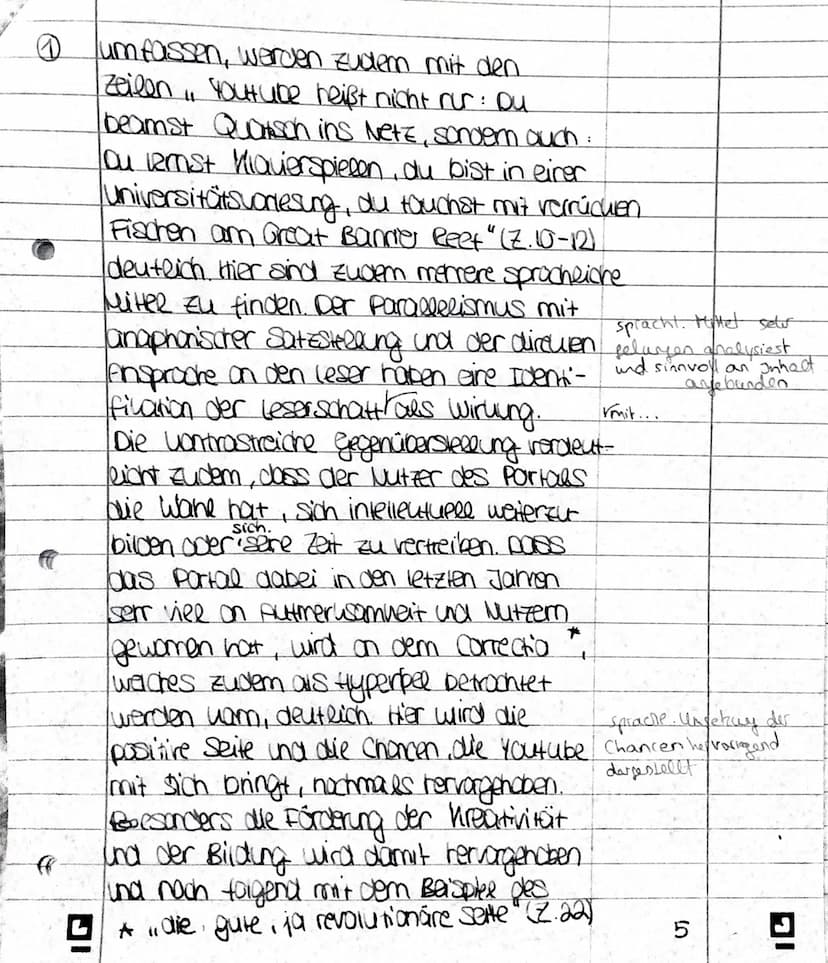 ① umfassen, werden zudem mit den
Zeilen „ Youtube heißt nicht nur: Du
beamst Quatsch ins Netz, sondern auch:
Du lernst Klavierspielen, du bist in einer
Universitätsvorlesung, du tauchst mit verrückten
Fischen am Great Barrier Reef" (Z. 10-12)
deutlich. Hier sind zudem mehrere sprachliche
Mittel zu finden. Der Parallelismus mit
anaphorischer Satzstellung und der direkten
sprachl. Mittel sehr
gelungen analysiert
und sinnvoll an Inhalt
angebunden
Ansprache an den Leser haben eine Identi-
fikation der Leserschaft als Wirkung.
mit...
Die kontrastreiche Gegenüberstellung verdeut-
licht zudem, dass der Nutzer des Portals
die Wahl hat, sich intellektuell weiterzu-
bilden oder sich seine Zeit zu vertreiben. Dass
das Portal dabei in den letzten Jahren
sehr viel an Aufmerksamkeit und Nutzern
gewonnen hat, wird an dem Correctio *,
welches zudem als Hyperbel betrachtet
werden kann, deutlich. Hier wird die
positive Seite und die Chancen, die Youtube
mit sich bringt, nochmals hervorgehoben.
sprachl. Umsetzung der
Chancen hervorragend
dargestellt
Besonders die Förderung der Kreativität
und der Bildung wird damit hervorgehoben
und nach folgend mit dem Beispiel des
* „die gute, ja revolutionäre Seite" (Z. 22)
5